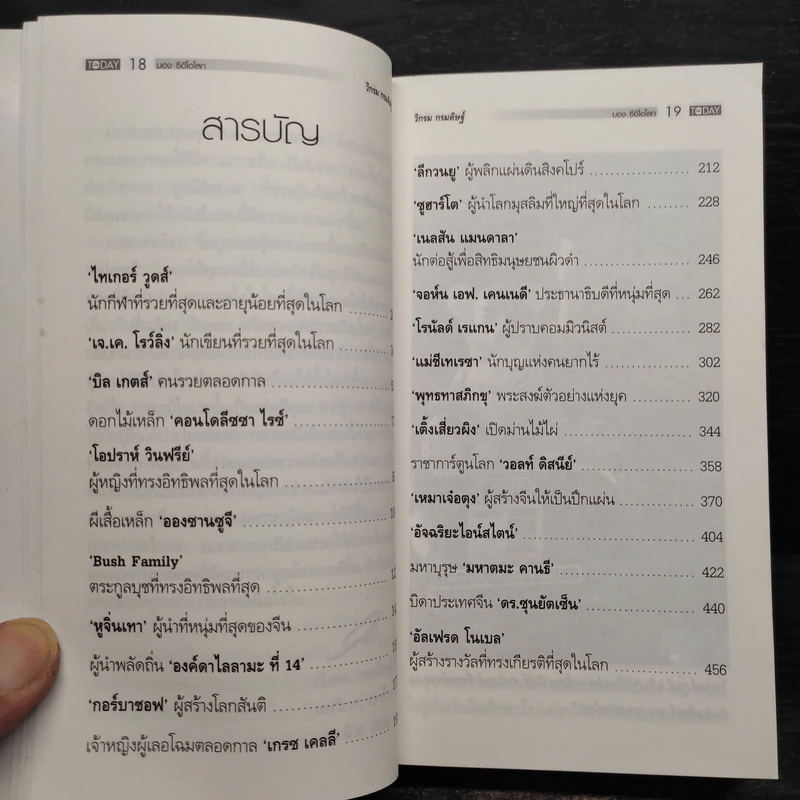 TODAY 18 มอง ซีอีโอโลก
วิกรม
สารบัญ
'ไทเกอร์ วูดส์'
นักกีฬาที่รวยที่สุดและอายุน้อยที่สุดในโลก
'เจ.เค. โรว์ลิ่ง' นักเขียนที่รวยที่สุดในโลก
'บิล เกตส์' คนรวยตลอดกาล
ดอกไม้เหล็ก 'คอนโดลีซซา ไรซ์'
'โอปราห์ วินฟรีย์'
ผู้หญิงที่ทรงอิทธิพลที่สุดในโลก
ผีเสื้อเหล็ก 'อองซานซูจี'
'Bush Family'
ตระกูลบุชที่ทรงอิทธิพลที่สุด
'หูจิ่นเทา' ผู้นำที่หนุ่มที่สุดของจีน
ผู้นำพลัดถิ่น 'องค์ดาไลลามะ ที่ 14'
'กอร์บาชอฟ' ผู้สร้างโลกสันติ
เจ้าหญิงผู้เลอโฉมตลอดกาล 'เกรซ เคลลี่'
วิกรม กรมดิษฐ์ มอง ซีอีโอโลก 19 TODAY
'ลีกวนยู' ผู้พลิกแผ่นดินสิงคโปร์ 212
'ซูฮาร์โต' ผู้นำโลกมุสลิมที่ใหญ่ที่สุดในโลก 228
'เนลสัน แมนดาลา'
นักต่อสู้เพื่อสิทธิมนุษยชนผิวดำ 246
'จอห์น เอฟ. เคนเนดี' ประธานาธิบดีที่หนุ่มที่สุด 262
'โรนัลด์ เรแกน' ผู้ปราบคอมมิวนิสต์ 282
'แม่ชีเทเรซา' นักบุญแห่งคนยากไร้ 302
'พุทธทาสภิกขุ' พระสงฆ์ตัวอย่างแห่งยุค 320
'เติ้งเสี่ยวผิง' เปิดม่านไม้ไผ่ 344
ราชาการ์ตูนโลก 'วอลท์ ดิสนีย์' 358
'เหมาเจ๋อตุง' ผู้สร้างจีนให้เป็นปึกแผ่น 370
'อัจฉริยะไอน์สไตน์' 404
มหาบุรุษ 'มหาตมะ คานธี' 422
บิดาประเทศจีน 'ดร.ซุนยัตเซ็น' 440
'อัลเฟรด โนเบล'
ผู้สร้างรางวัลที่ทรงเกียรติที่สุดในโลก 456